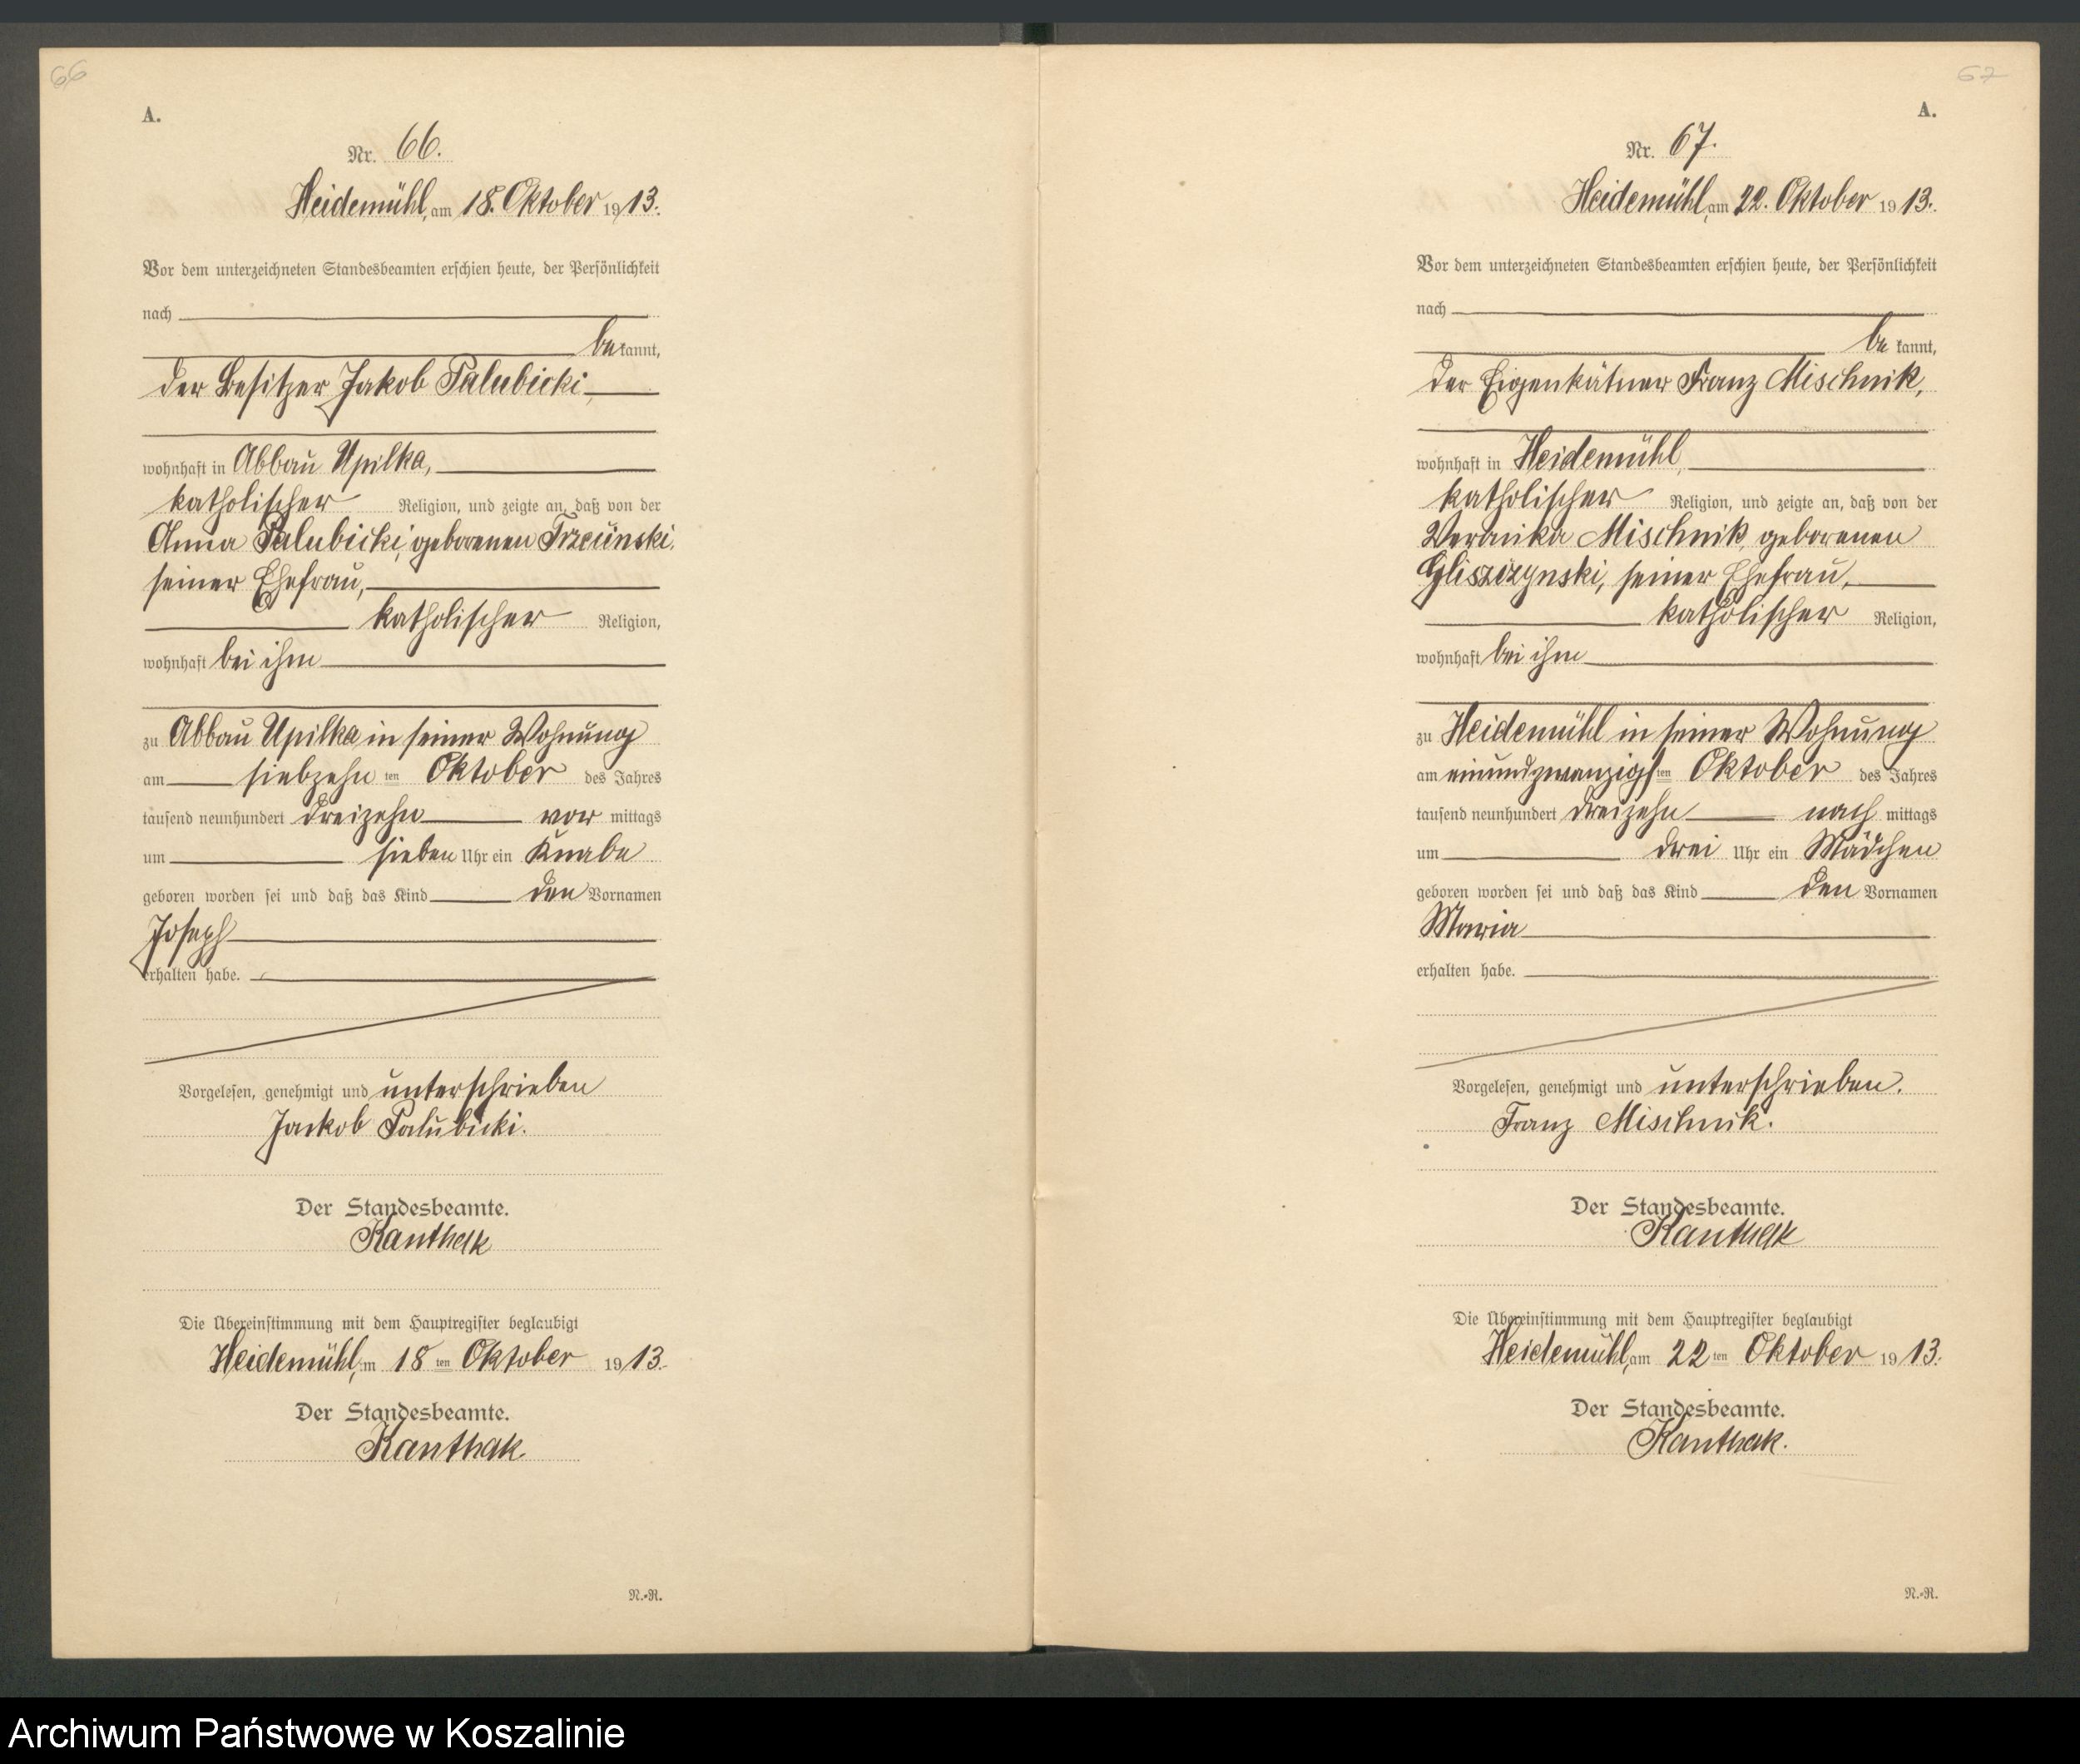 66
A.
Nr. 66.
Heidemühl, am 18. Oktober 1913.
Vor dem unterzeichneten Standesbeamten erschien heute, der Persönlichkeit
nach
bekannt,
der Besitzer Jakob Palubicki,
wohnhaft in Abbau Upilka,
katholischer Religion, und zeigte an, daß von der
Anna Palubicki, geborenen
seiner Ehefrau,
katholischer Religion,
wohnhaft bei ihm
zu Abbau Upilka in seiner Wohnung
am siebzehnten Oktober des Jahres
tausend neunhundert dreizehn vormittags
um sieben Uhr ein Knabe
geboren worden sei und daß das Kind den Vornamen
Joseph
erhalten habe.
Vorgelesen, genehmigt und unterschrieben
Jackob Palubicki.
Der Standesbeamte.
Kanthak
Die Übereinstimmung mit dem Hauptregister beglaubigt
Heidemühl, am 18ten Oktober 1913.
Der Standesbeamte.
Kanthak
N.-R.
67
A.
Nr. 67.
Heidemühl, am 22. Oktober 1913.
Vor dem unterzeichneten Standesbeamten erschien heute, der Persönlichkeit
nach
bekannt,
der Eigenkätner Franz Mischnik,
wohnhaft in Heidemühl,
katholischer Religion, und zeigte an, daß von der
Veronika Mischnik, geborenen
Gliszizynski, seiner Ehefrau,
katholischer Religion,
wohnhaft bei ihm
zu Heidemühl in seiner Wohnung
am einundzwanzigsten Oktober des Jahres
tausend neunhundert dreizehn nachmittags
um drei Uhr ein Mädchen
geboren worden sei und daß das Kind den Vornamen
Maria
erhalten habe.
Vorgelesen, genehmigt und unterschrieben.
Franz Mischnik.
Der Standesbeamte.
Kanthak
Die Übereinstimmung mit dem Hauptregister beglaubigt
Heidemühl, am 22ten Oktober 1913.
Der Standesbeamte.
Kanthak.
N.-R.
Archiwum Państwowe w Koszalinie